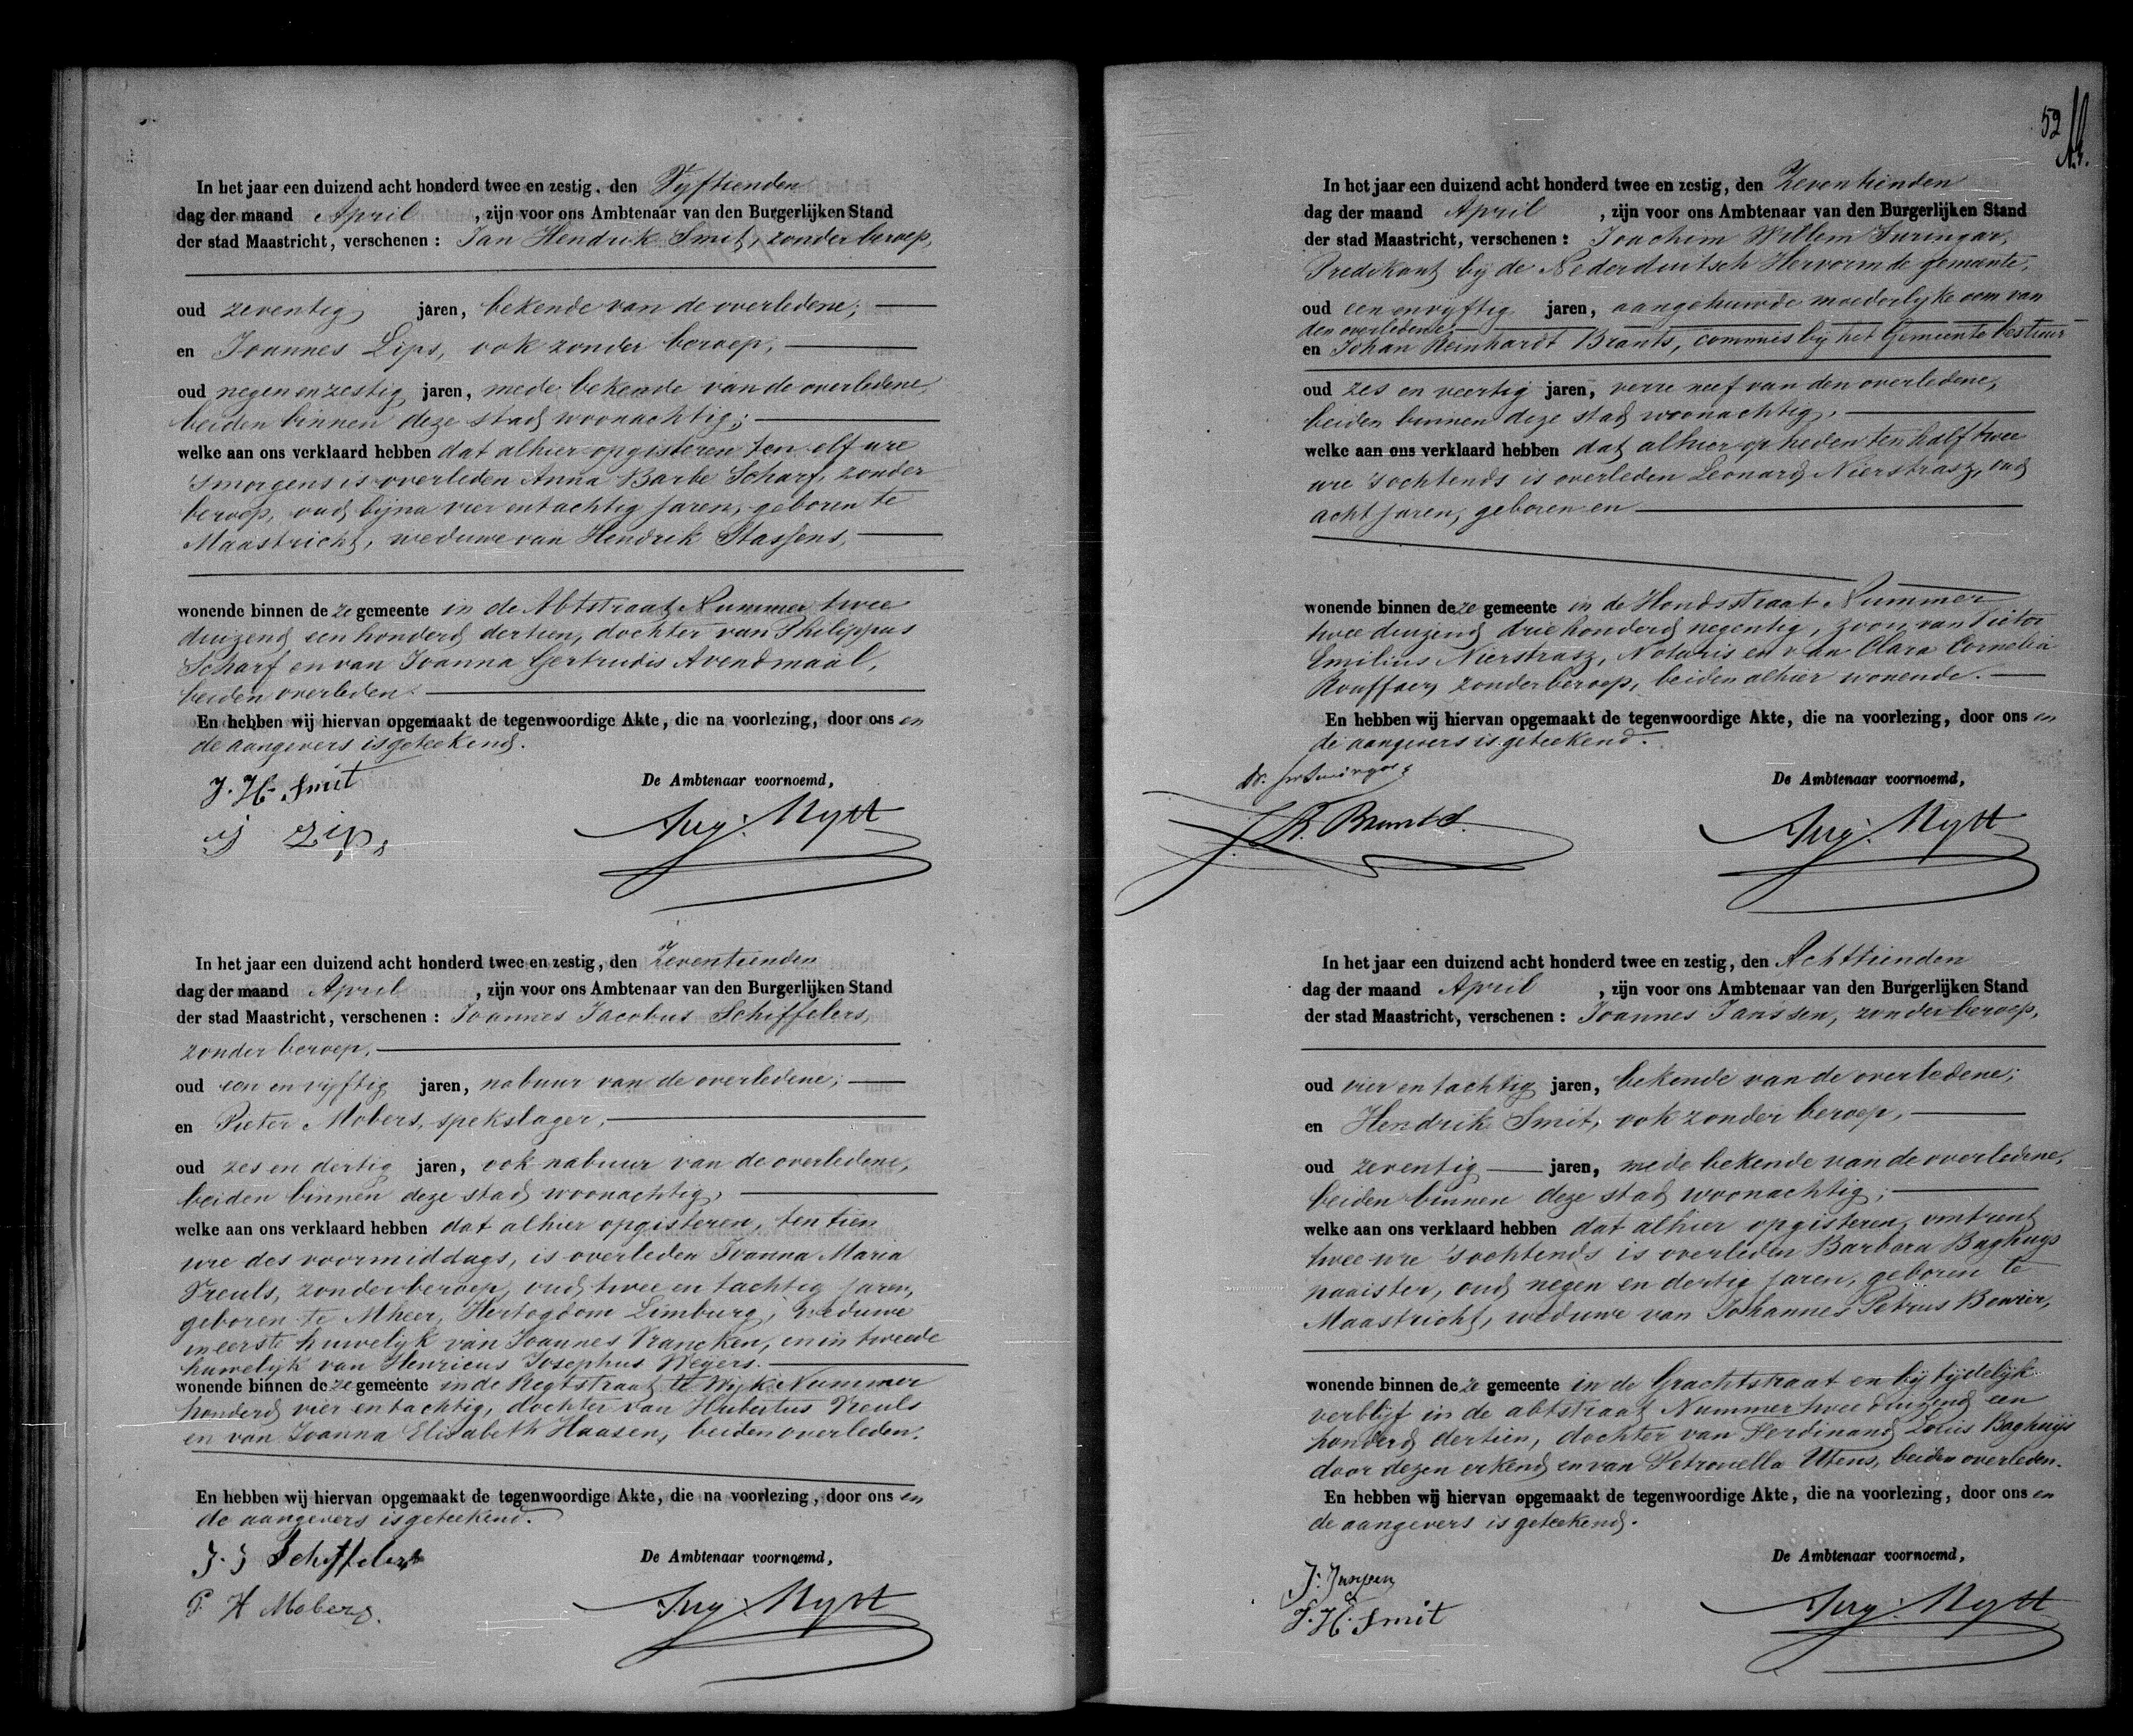 In het jaar een duizend acht honderd twee en zestig, den Vyftienden
dag der maand April , zijn voor ons Ambtenaar van den Burgerlijken Stand
der stad Maastricht, verschenen : Jan Hendrik Smit, zonder beroep,
oud zeventig jaren, bekende van de overledene;
en Joannes Lips, ook zonder beroep,
oud negen en zestig jaren, mede bekende van de overledene,
beiden binnen deze stad woonachtig;
welke aan ons verklaard hebben dat alhier opgisteren ten elf ure
smorgens is overleden Anna Barbe Scharf, zonder
beroep, oud bijna vier en tachtig jaren, geboren te
Maastricht, weduwe van Hendrik Stassens,
wonende binnen deze gemeente in de Abtstraat Nummer twee
duizend een honderd dertien, dochter van Philippus
Scharf en van Joanna Gertrudis Avendmaal,
beiden overleden.
En hebben wij hiervan opgemaakt de tegenwoordige Akte, die na voorlezing, door ons en
de aangevers is geteekend.
J. H. Smit
De Ambtenaar voornoemd,
J Lips
In het jaar een duizend acht honderd twee en zestig, den Zeventienden
dag der maand April , zijn voor ons Ambtenaar van den Burgerlijken Stand
der stad Maastricht, verschenen : Joannes Jacobus Schiffelers,
zonder beroep,
oud een en vyftig jaren, nabuur van de overledene;
en Pieter Mobers, spekslager,
oud zes en dertig jaren, ook nabuur van de overledene,
beiden binnen deze stad woonachtig,
welke aan ons verklaard hebben dat alhier opgisteren, ten tien
ure des voormiddags, is overleden Joanna Maria
Preuls, zonder beroep, oud twee en tachtig jaren,
geboren te Mheer, Hertogdom Limburg, weduwe
in eerste huwelijk van Joannes Vrancken, en in tweede
huwelijk van Henricus Josephus Weijers.
wonende binnen deze gemeente in de Regtstraat te Wijk Nummer
honderd vier en tachtig, dochter van Hubertus Preuls
en van Joanna Elisabeth Haasen, beiden overleden.
En hebben wij hiervan opgemaakt de tegenwoordige Akte, die na voorlezing, door ons en
de aangevers is geteekend.
J. J Schiffelers
De Ambtenaar voornoemd,
P. H Mobers.
52
In het jaar een duizend acht honderd twee en zestig, den Zeventienden
dag der maand April , zijn voor ons Ambtenaar van den Burgerlijken Stand
der stad Maastricht, verschenen : Joachim Willem Suringar,
Predikant bij de Nederduitsch Hervormde gemeente,
oud een en vyftig jaren, aangehuwde moederlijke oom van
den overledene;
en Johan Reinhardt Brants, commies bij het Gemeente bestuur
oud zes en veertig jaren, verre neef van den overledene,
beiden binnen deze stad woonachtig,
welke aan ons verklaard hebben dat alhier op heden ten half twee
ure sochtends is overleden Leonard Nierstrasz, oud
acht jaren, geboren en
wonende binnen deze gemeente in de Hondsstraat Nummer
twee duizend drie honderd negentig, zoon van Victor
Emilius Nierstrasz, Notaris en van Clara Cornelia
Rouffaer, zonder beroep, beiden alhier wonende.
En hebben wij hiervan opgemaakt de tegenwoordige Akte, die na voorlezing, door ons en
de aangevers is geteekend.
De Ambtenaar voornoemd,
J. R. Brants.
In het jaar een duizend acht honderd twee en zestig, den Achttienden
dag der maand April , zijn voor ons Ambtenaar van den Burgerlijken Stand
der stad Maastricht, verschenen : Joannes Janssen, zonder beroep,
oud vier en tachtig jaren, bekende van de overledene;
en Hendrik Smit, ook zonder beroep,
oud zeventig jaren, mede bekende van de overledene,
beiden binnen deze stad woonachtig;
welke aan ons verklaard hebben dat alhier opgisteren, omtrent
twee ure sochtends is overleden Barbara Baghuys
naaister, oud negen en dertig jaren, geboren te
Maastricht, weduwe van Johannes Petrus
wonende binnen deze gemeente in de Grachtstraat en bij tijdelijk
verblijf in de abtstraat Nummer twee duizend een
honderd dertien, dochter van Ferdinand Louis Baghuijs
door dezen erkend en van Petronella Utens, beiden overleden.
En hebben wij hiervan opgemaakt de tegenwoordige Akte, die na voorlezing, door ons en
de aangevers is geteekend.
De Ambtenaar voornoemd,
J. Janssen
J. H. Smit